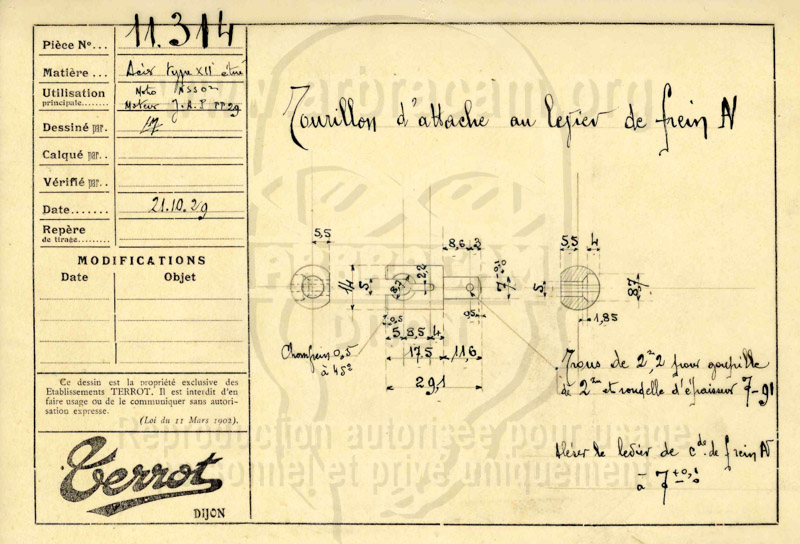 Pièce No... 11.314
Matière... Acier type XII étiré
Utilisation Moto
principale....... Moteur J.A.P
Dessiné par.
Calqué par..
Vérifié par..
Date....... 21.10.29
Repère
de tirage.......
MODIFICATIONS
Date Objet
Ce dessin est la propriété exclusive des
Etablissements TERROT. Il est interdit d'en
faire usage ou de le communiquer sans autori-
sation expresse.
(Loi du 11 Mars 1902).
Terrot
DIJON
Tourillon d'attache au levier de frein AV
5,5
8,6 3
5,5 4
14
5
8,7
2,2
7
5
8,7
0,5
95
1,85
5 8,5 4
17,5 11,6
29,1
Chanfrein 0,5
à 45°
Trous de 2,2 pour goupille
de 2 et rondelle d'épaisseur 7-91
Aléser le levier de cde de frein AV
à 7 +0,1 -0
www.arbracam.org
ARBRACAM
DIJON
Reproduction autorisée pour usage
personnel et privé uniquement